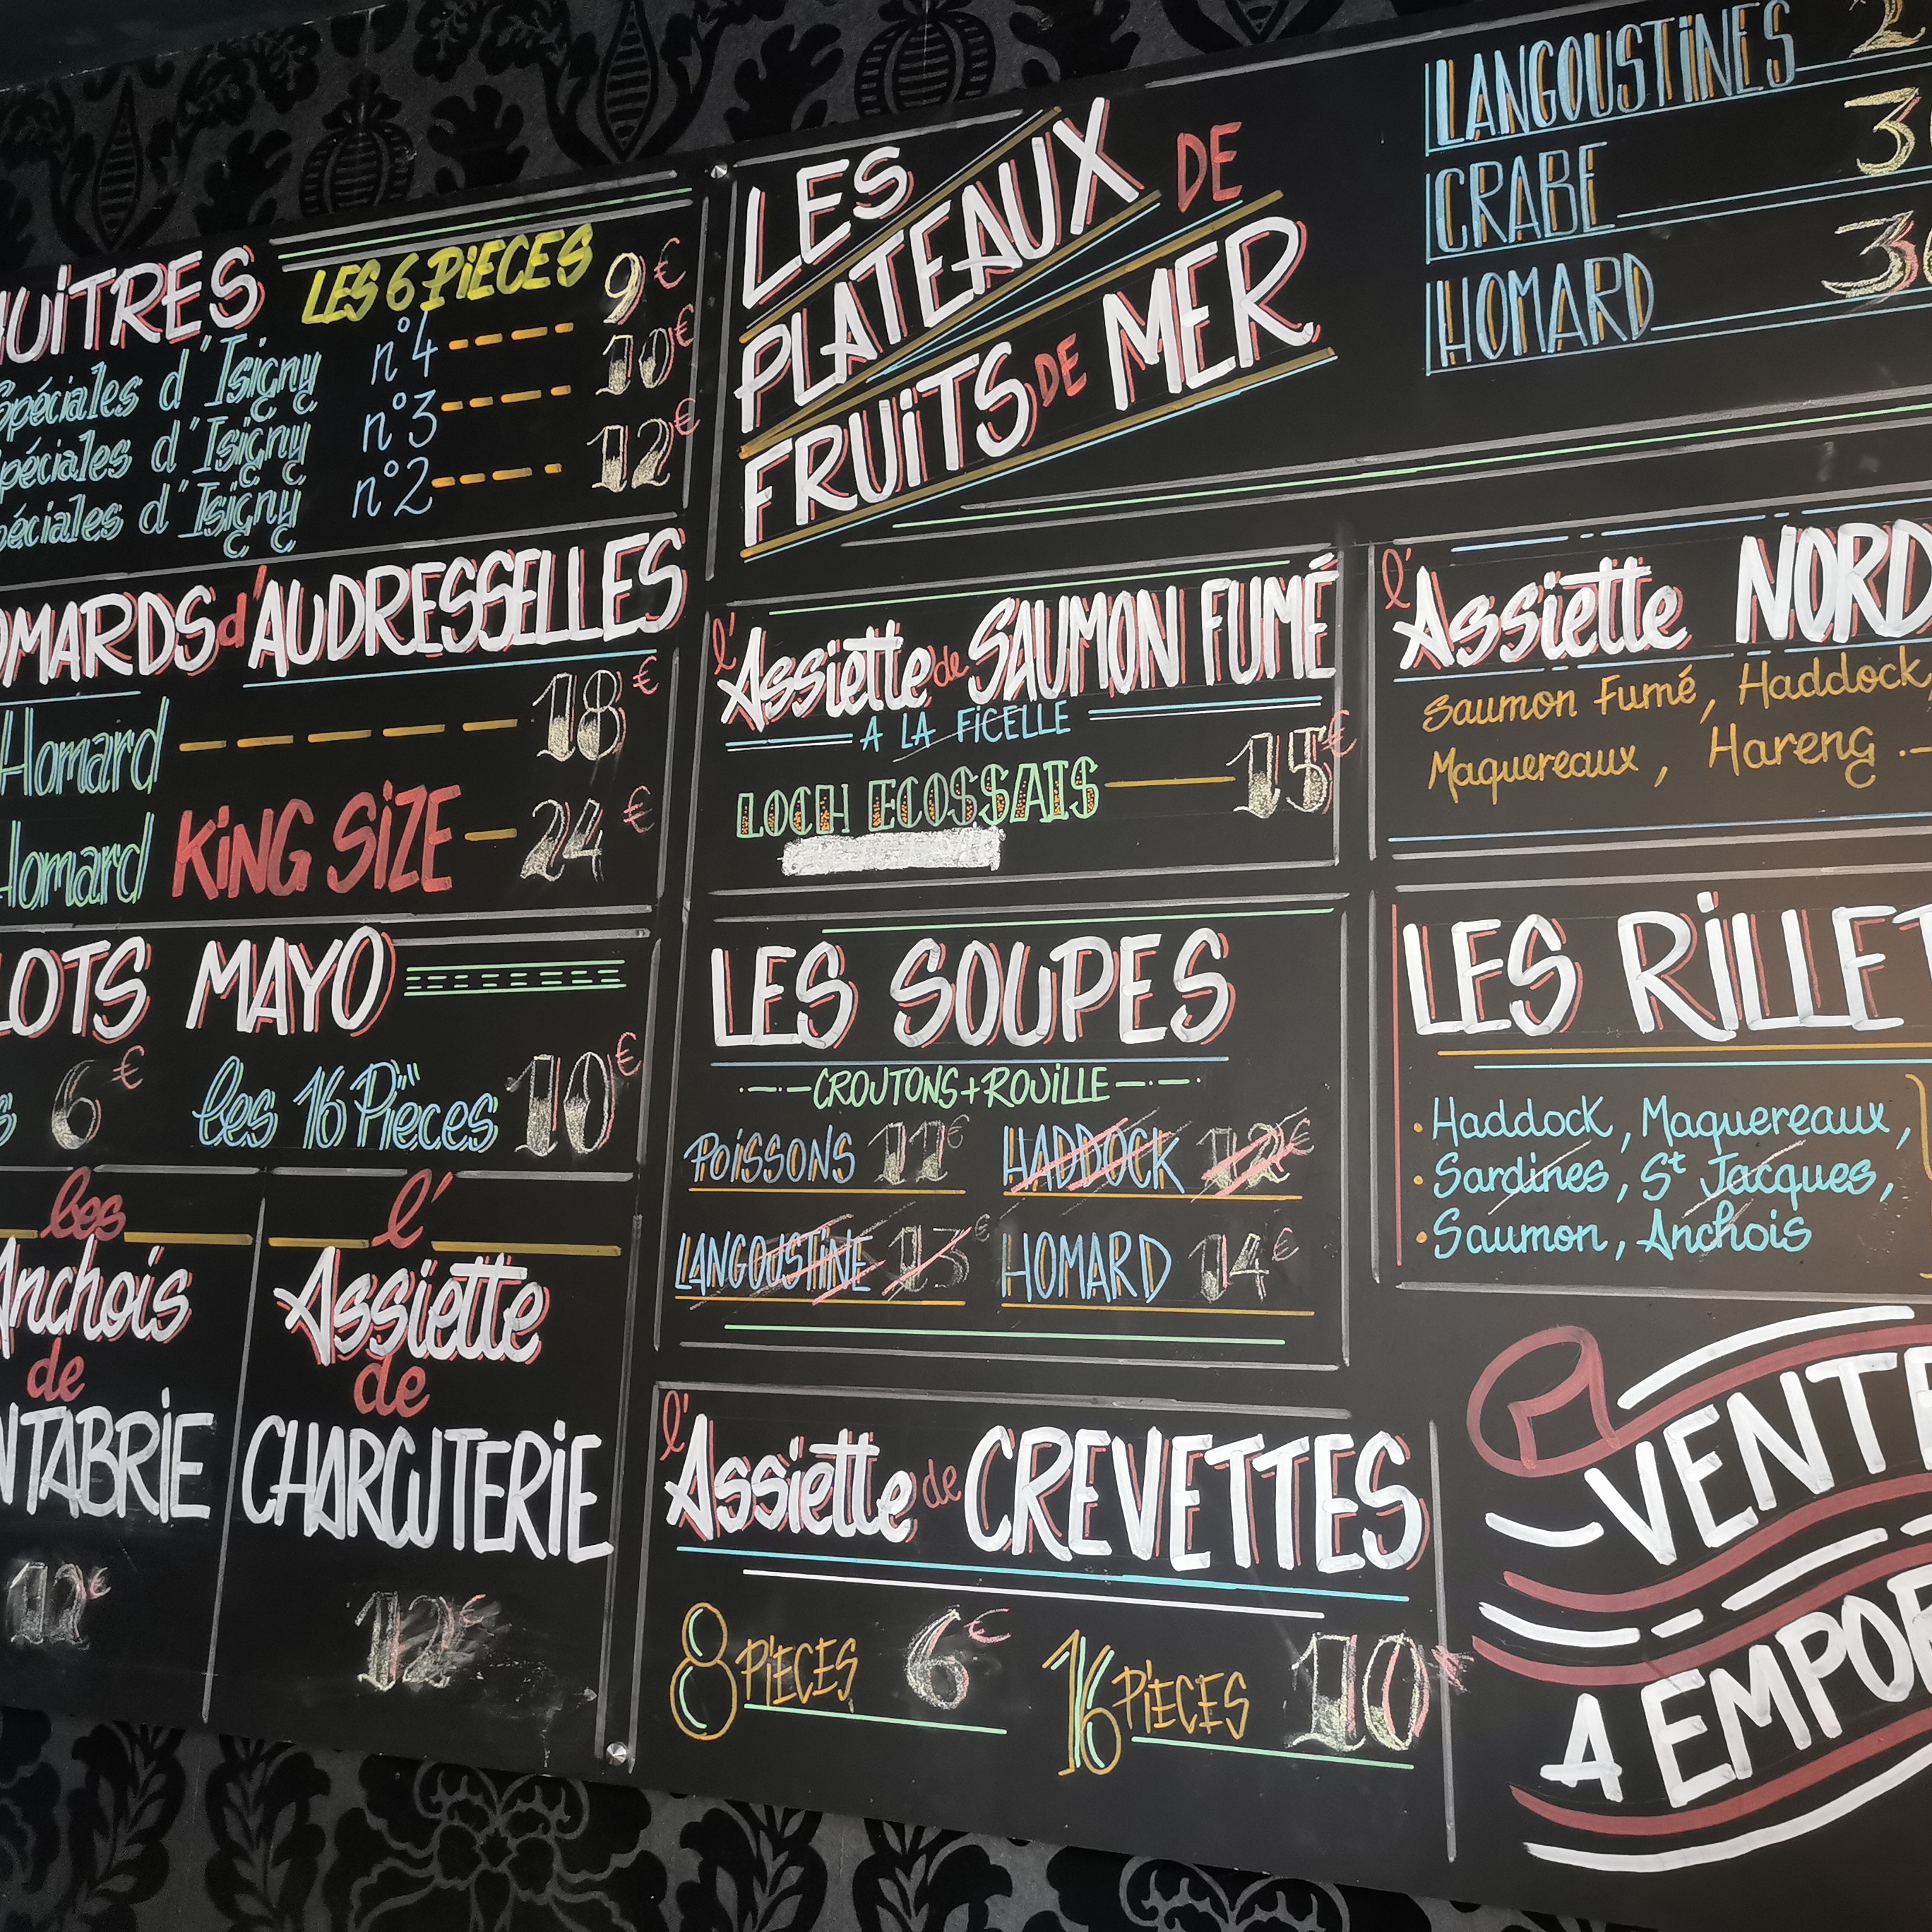 HUiTRES LES 6 PiECES
Spéciales d'Isigny n°4 9€
Spéciales d'Isigny n°3 10€
Spéciales d'Isigny n°2 12€
HOMARDS d'AUDRESSELLES
Homard 18€
Homard KiNG SiZE 24€
LOTS MAYO
6€ les 16 Pièces 10€
les
Anchois
de
NTABRiE
12€
l'
Assiette
de
CHARCUTERiE
12€
LES
PLATEAUX DE
FRUiTS DE MER
LANGOUSTiNES 2
CRABE 3
HOMARD 3
l'Assiette de SAUMON FUMÉ
A LA FiCELLE
LOCH ECOSSAIS 15€
l'Assiette NORD
Saumon Fumé, Haddock,
Maquereaux, Hareng
LES SOUPES
CROUTONS+ROUiLLE
POiSSONS 11€ HADDOCK 12€
LANGOUSTiNE 13€ HOMARD 14€
LES RiLLET
Haddock, Maquereaux,
Sardines, St Jacques,
Saumon, Anchois
l'Assiette de CREVETTES
8 PiECES 6€ 16 PiECES 10€
VENTE
A EMPOR